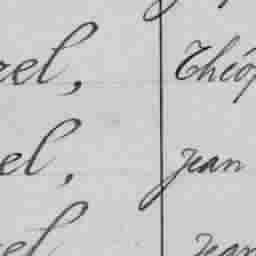 rel, Théop
el, Jean
el Jean